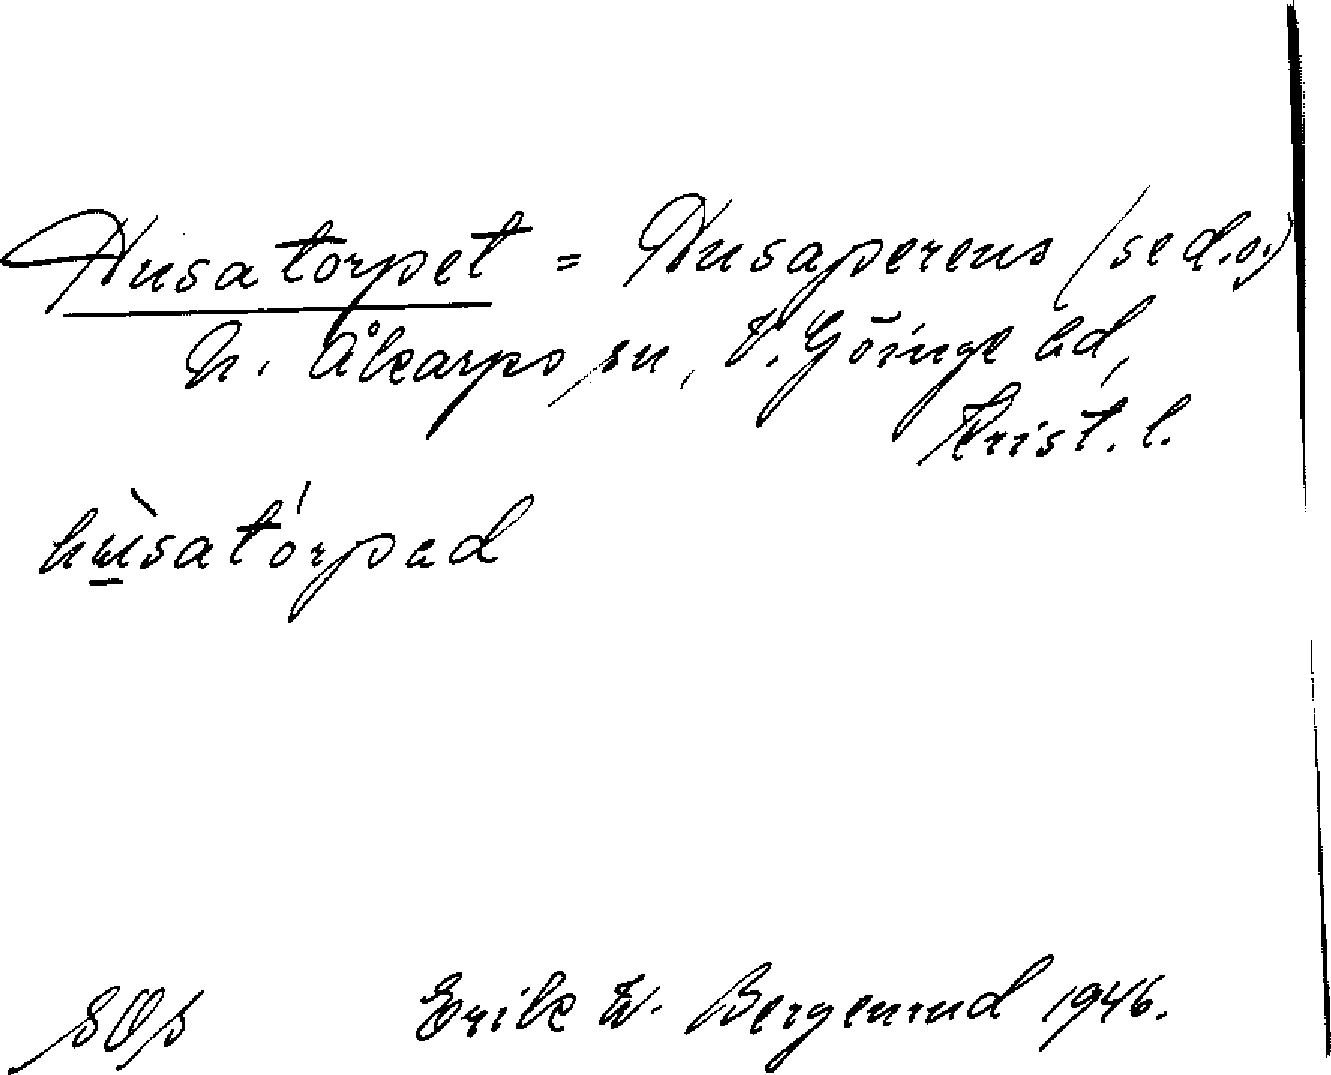 Husatorpet = Husaperens (se d.o.)
N. Åkarps sn, V. Göinge hd,
Krist. l.
hùsatórpad
Erik W. Bergenrud 1946.